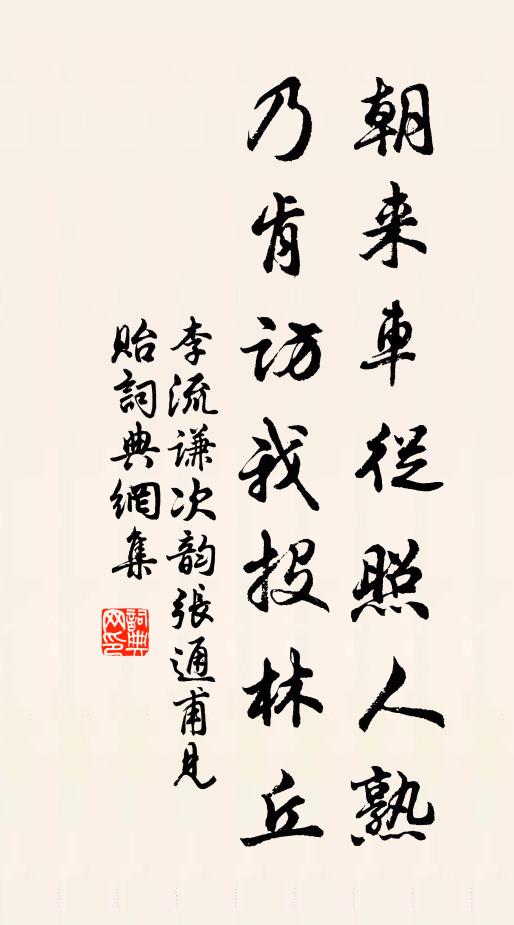 朝来車從照人熟
乃肯訪我投林丘
李流谦次韵張通甫見
貽詞典網集
詞典
网印